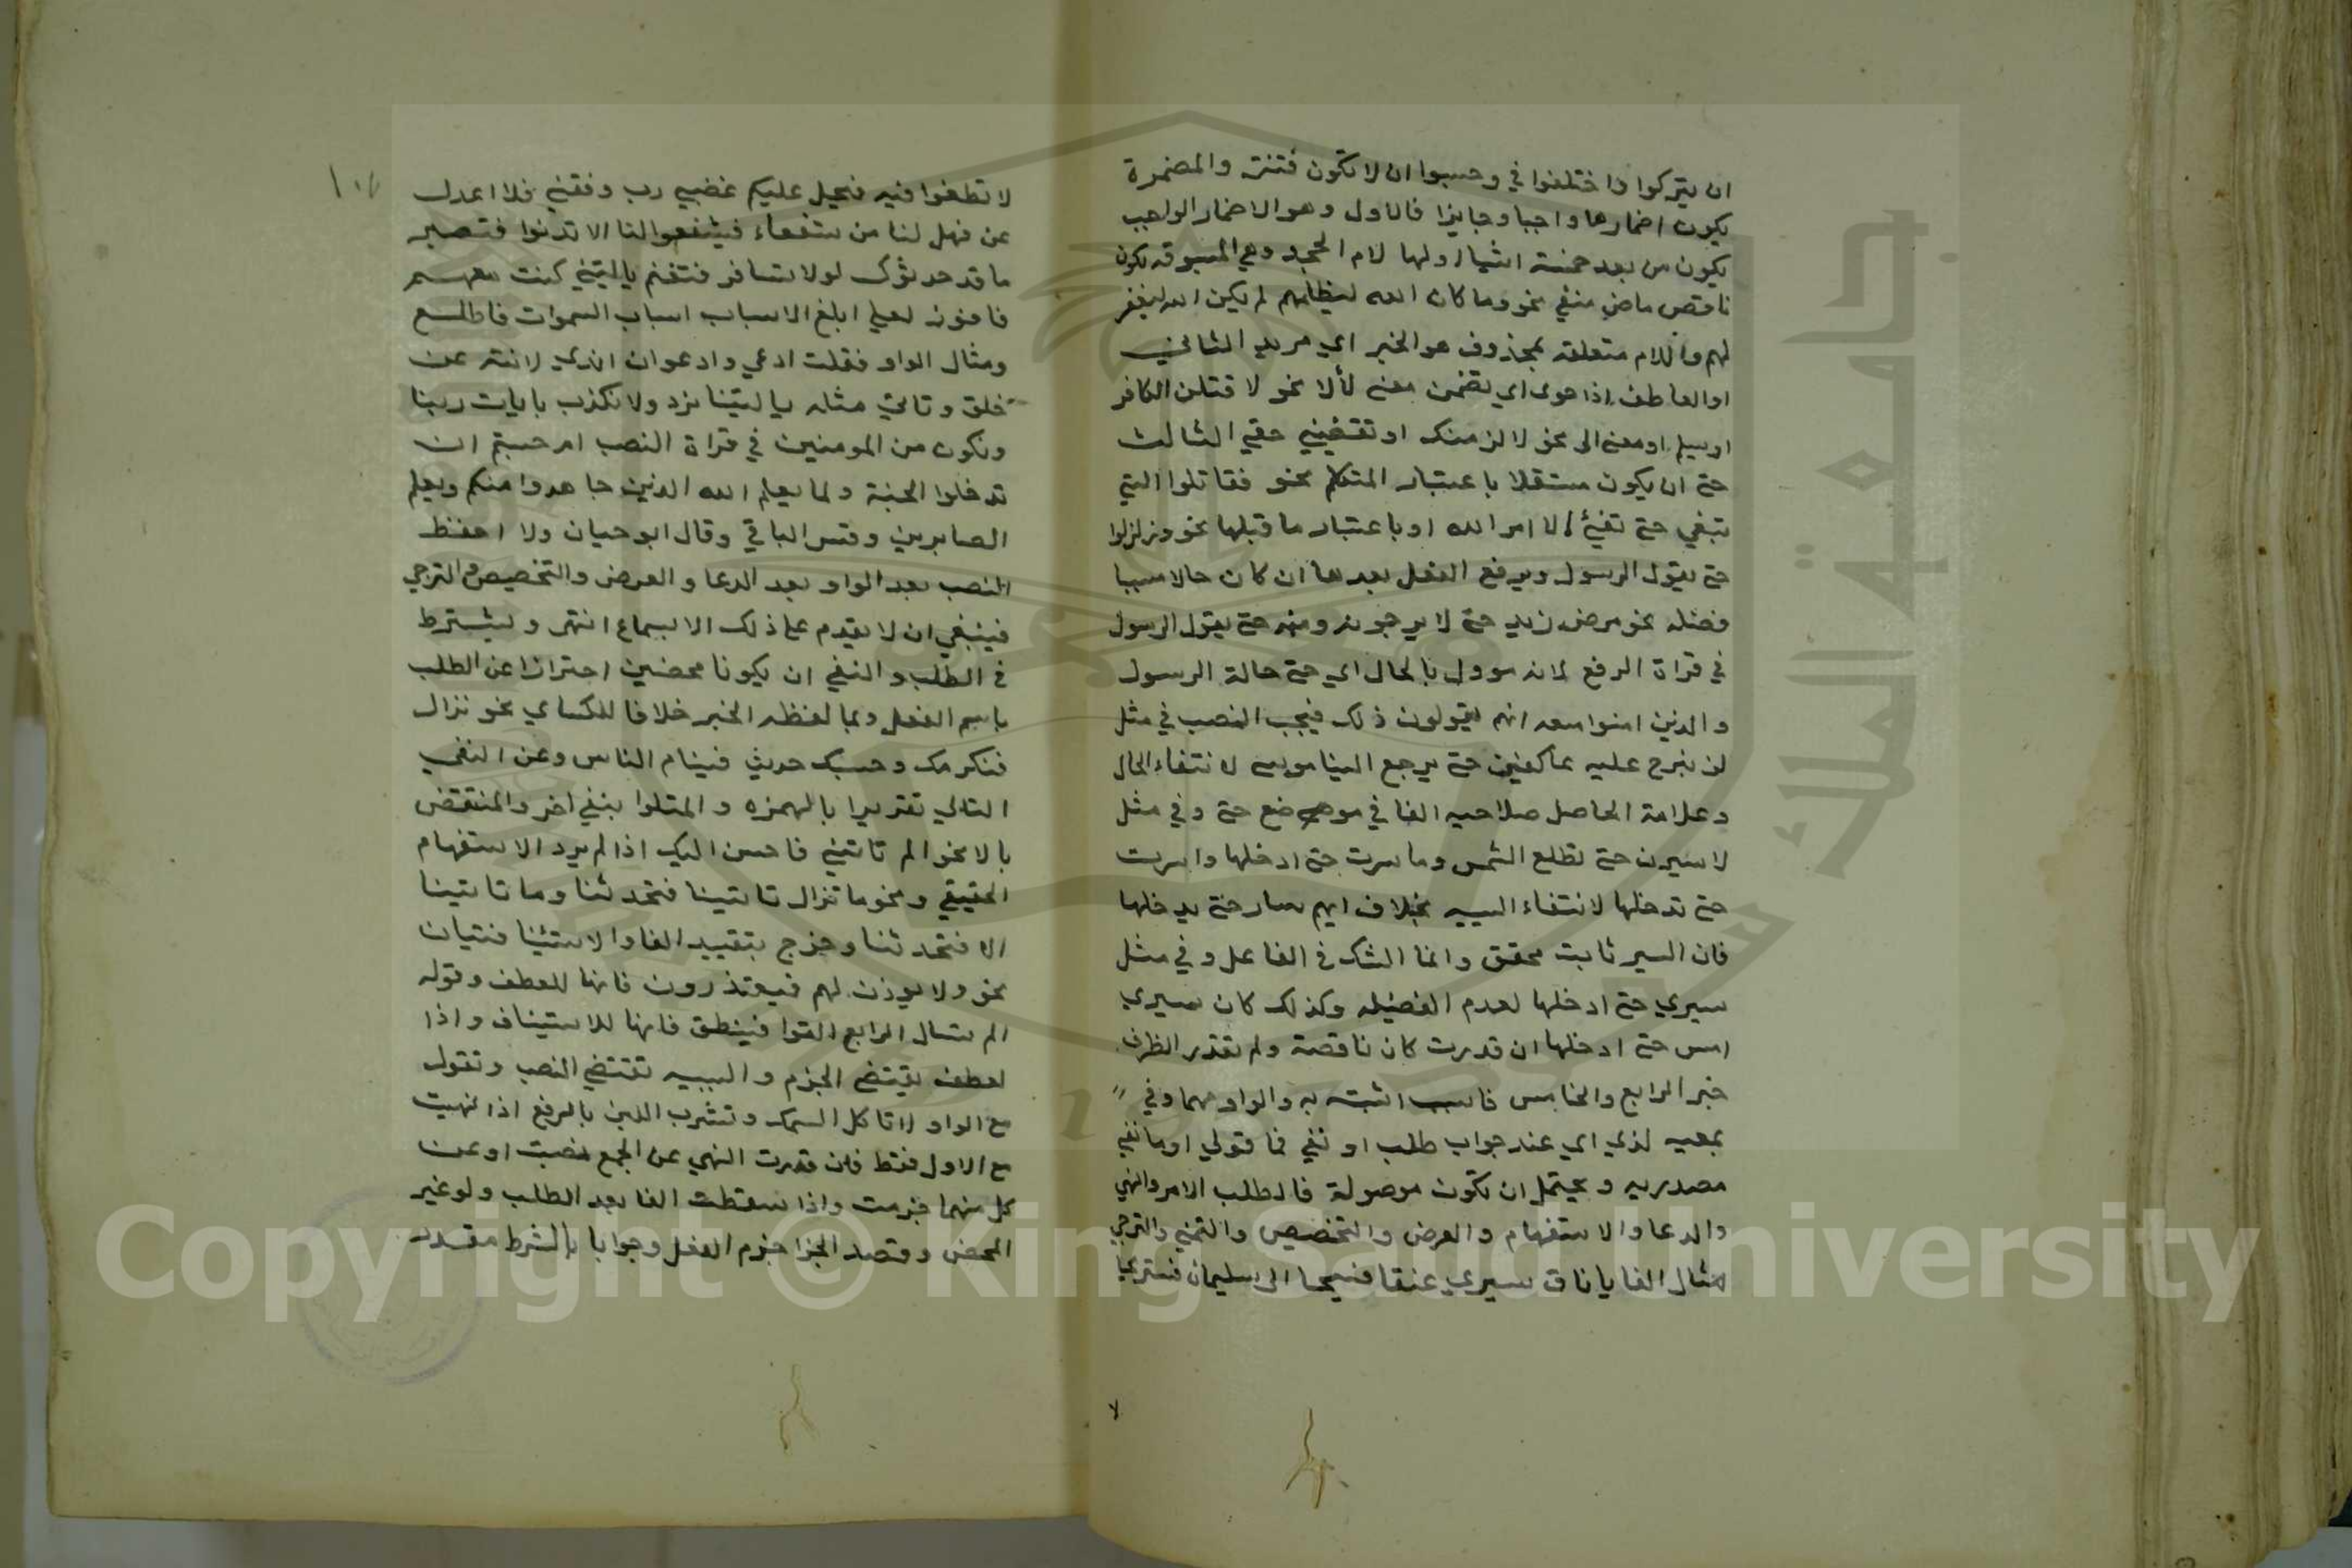 ان يتركوا واختلفوا في وحسبوا ان لا تكون فتنة والمضمرة
يكون اضمارها واجبا وجايزا فالاول وهو الاضمار الواجب
يكون من بعد خمسة اشيا اولها لام الجحد وهي المسبوقه بكون
ناقص ماض منفي نحو وما كان الله ليظلمهم لم يكن الله ليغفر
لهم واللام متعلقه بمحذوف هو الخبر اي مريد الثاني
او العاطف اذا حوى اي تضمن معنى لألا نحو لا قتلن الكافر
او يسلم او معنى الى نحو لا لزمنك او تقضيني حقي الثالث
حتى ان يكون مستقلا باعتبار المتكلم نحو فقاتلوا التي
تبغي حتى تفئ الا امر الله او باعتبار ما قبلها نحو وزلزلوا
حتى يقول الرسول ويرفع الفعل بعدها ان كان حالا مسببا
فضله نحو مرض زيد حتى لا يرجونه ومنه حتى يقول الرسول
في قراة الرفع لانه موول بالحال اي حتى حالة الرسول
والذين امنوا معه انهم يقولون ذلك فيجب النصب في مثل
لن نبرح عليه عاكفين حتى يرجع الينا موسى لانتفاء الحال
وعلامة الحاصل صلاحيه الفا في موضع حتى وفي مثل
لا سيرن حتى تطلع الشمس وما سرت حتى ادخلها واسرت
حتى تدخلها لانتفاء السببيه بخلاف ايهم سار حتى يدخلها
فان السير ثابت محقق وانما الشك في الفاعل وفي مثل
سيري حتى ادخلها لعدم الفضيله وكذلك كان سيري
امس حتى ادخلها ان قدرت كان ناقصة ولم تقدر الظرف
خبر الرابع والخامس فا سبب اثبتت به والواو مهما وفي
بمعيه لذي اي عند جواب طلب او نفي فما قولي او ما نفي
مصدريه ويحتمل ان تكون موصولة فالطلب الامر والنهي
والدعا والاستفهام والعرض والتخصيص والتمني والترجي
مثال الفا يا ناق سيري عنقا فسيحا الى سليمان فنستريحا
لا
لا تطغوا فيه فيحل عليكم غضبي رب وفقني فلا اعدل
عن فهل لنا من شفعاء فيشفعوا لنا الا تدنوا فتبصر
ما قد حدثوك لولا تسافر فتغنم يا ليتني كنت معهم
فافوز لعلي ابلغ الاسباب اسباب السموات فاطلع
ومثال الواو فقلت ادعي وادعو ان اندي لا تنه عن
خلق وتاتي مثله يا ليتنا نرد ولا نكذب بايات ربنا
ونكون من المومنين في قراة النصب ام حسبتم ان
تدخلوا الجنة ولما يعلم الله الذين جاهدوا منكم ويعلم
الصابرين وقس الباقي وقال ابو حيان ولا احفظ
النصب بعد الواو بعد الدعا والعرض والتخصيص والترجي
فينبغي ان لا يقدم على ذلك الا بسماع انتهى ويشترط
في الطلب والنفي ان يكونا محضين احترازا عن الطلب
باسم الفعل وبما لفظه الخبر خلافا للكساي نحو نزال
فنكرمك وحسبك حديث فينام الناس وعن النفي
التالي تقريرا بالهمزه والمتلوا بنفي اخر والمنتقض
بالا نحو الم تاتيني فاحسن اليك اذا لم يرد الاستفهام
الحقيقي ونحو ما تزال تاتينا فتحدثنا وما تاتينا
الا فتحدثنا وخرج بتقييد الفا والاستئنا فتيان
نحو ولا يوذن لهم فيعتذرون فانها للعطف وقوله
الم تسال الرابع القوا فينطق فانها للاستيناف واذا
لعطف يقتضي الجزم والسببيه تقتضي النصب وتقول
مع الواو لا تاكل السمك وتشرب اللبن بالرفع اذا نهيت
مع الاول فقط فان قدرت النهي عن الجمع نصبت او عن
كل منهما جزمت واذا سقطت الفا بعد الطلب ولو غير
المحض وقصد الجزا جزم الفعل وجوابا بالشرط مقدر
Copyright © King Saud University
جامعة الملك سعود